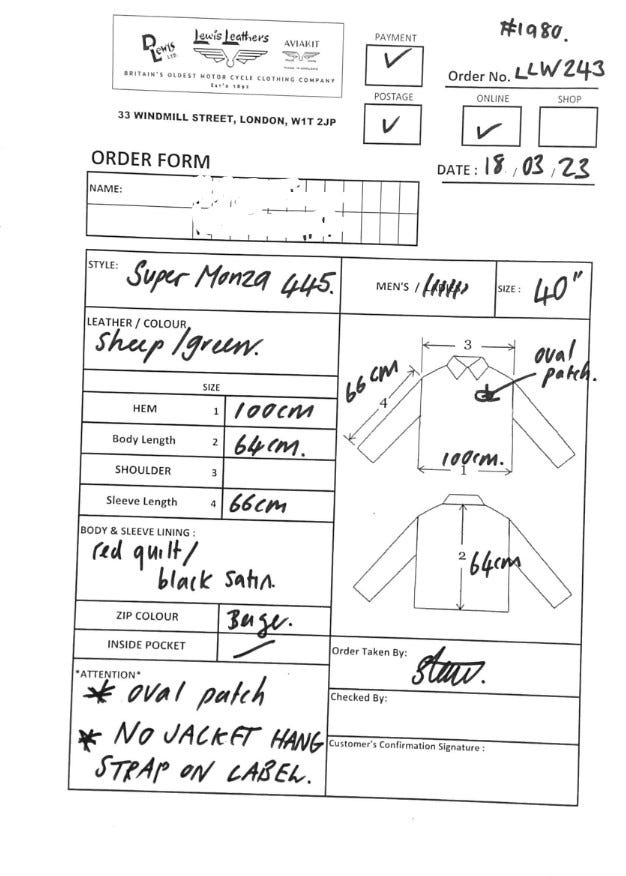 #1980.
D Lewis LTD.
Lewis Leathers
AVIAKIT
BRITAIN'S OLDEST MOTOR CYCLE CLOTHING COMPANY
Est'd 1892
33 WINDMILL STREET, LONDON, W1T 2JP
PAYMENT
✓
Order No. LLW243
POSTAGE
✓
ONLINE
✓
SHOP
ORDER FORM
DATE : 18 / 03 / 23
NAME:
STYLE: Super Monza 445.
MEN'S / LADIES
SIZE : 40"
LEATHER / COLOUR
sheep/green.
SIZE
HEM 1 100cm
Body Length 2 64cm.
SHOULDER 3
Sleeve Length 4 66cm
3
66cm
4
oval
patch.
100cm.
1
2 64cm
BODY & SLEEVE LINING :
red quilt/
black satin.
ZIP COLOUR Beige.
INSIDE POCKET /
*ATTENTION*
* oval patch
* NO JACKET HANG
STRAP ON LABEL.
Order Taken By:
Checked By:
Customer's Confirmation Signature :